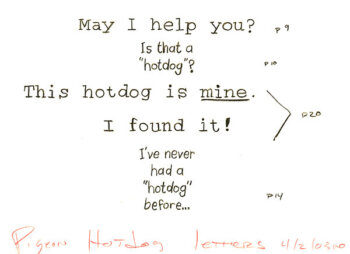 May I help you? p 9
Is that a
"hotdog"? p 10
This hotdog is mine.
p 20
I found it!
I've never
had a
"hotdog"
before... p 14
Pigeon HotDog letters